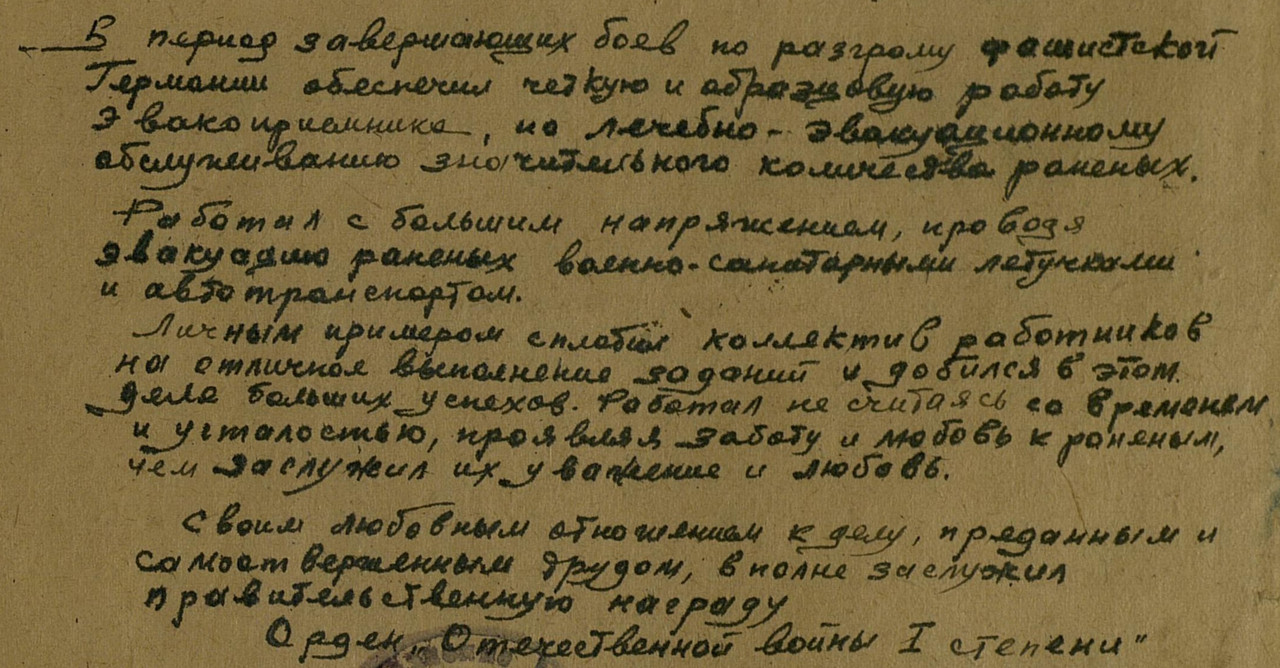 В период завершающих боев по разгрому фашистской
Германии обеспечил четкую и образцовую работу
Эвакоприемника, по лечебно-эвакуационному
обслуживанию значительного количества раненых.
Работал с большим напряжением, проводя
эвакуацию раненых военно-санитарными летучками
и автотранспортом.
Личным примером сплотил коллектив работников
на отличное выполнение заданий и добился в этом
деле больших успехов. Работал не считаясь со временем
и усталостью, проявляя заботу и любовь к раненым,
чем заслужил их уважение и любовь.
Своим любовным отношением к делу, преданным и
самоотверженным трудом, вполне заслужил
правительственную награду
Орден „Отечественной войны I степени"